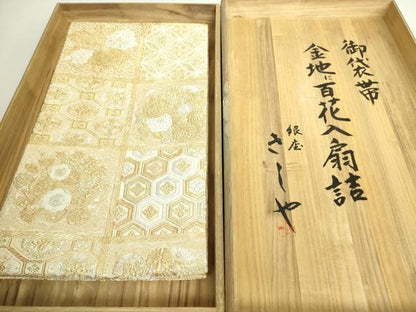 御袋帯
金地に百花入扇詰
銀座
きしや